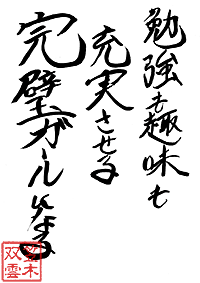 勉強も趣味も
充実させる
完璧ガールになる
双雲